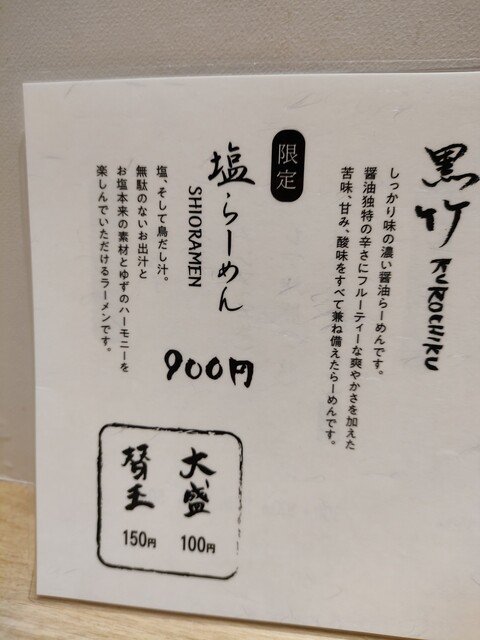 黒竹
KUROCHIKU
しっかり味の濃い醤油らーめんです。
醤油独特の辛さにフルーティーな爽やかさを加えた
苦味、甘み、酸味をすべて兼ね備えたらーめんです。
限定
塩らーめん
SHIORAMEN
塩、そして鳥だし汁。
無駄のないお出汁と
お塩本来の素材とゆずのハーモニーを
楽しんでいただけるラーメンです。
900円
大盛
100円
替玉
150円